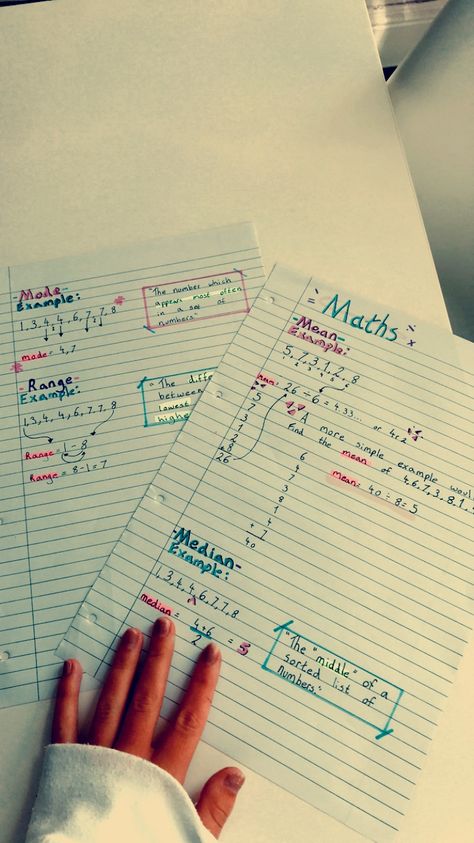 -Mode-
Example:
1,3,4,4,6,7,7,8
mode = 4,7
"The number which
appears most often
in a set of
numbers."
-Range-
Example:
1,3,4,4,6,7,7,8
Range = 1 - 8
Range = 8-1 = 7
"The
between
lowest
Maths
-Mean-
Example:
5,7,3,1,2,8
mean: 26 ÷ 6 = 4.33... or 4r2
5
7
3
1
2
+8
26
A more simple example
Find the mean of
4,6,7,3,8,1,
mean = 40 ÷ 8 = 5
6
4
7
3
8
1
4
+ 7
40
-Median-
Example:
1,3,4,4,6,7,7,8
median = 4+6
2
= 5
"The "middle" of a
sorted list of
numbers."